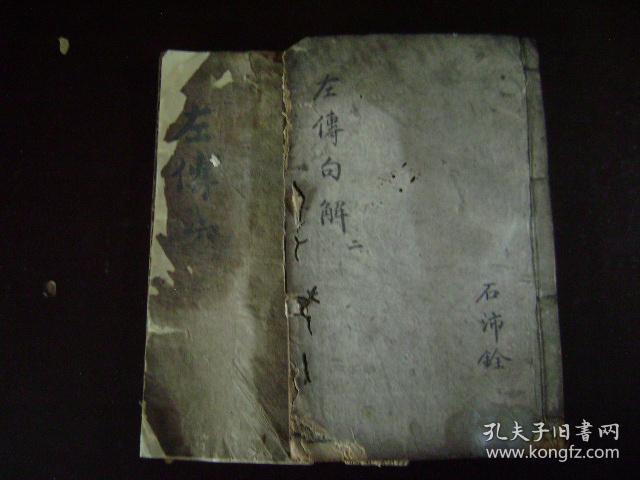 左傳句解
二
石沛銓
左傳
孔夫子旧书网
www.kongfz.com